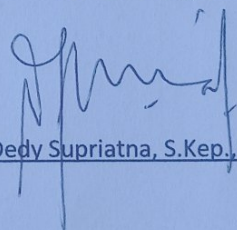 Dedy Supriatna, S.Kep.,